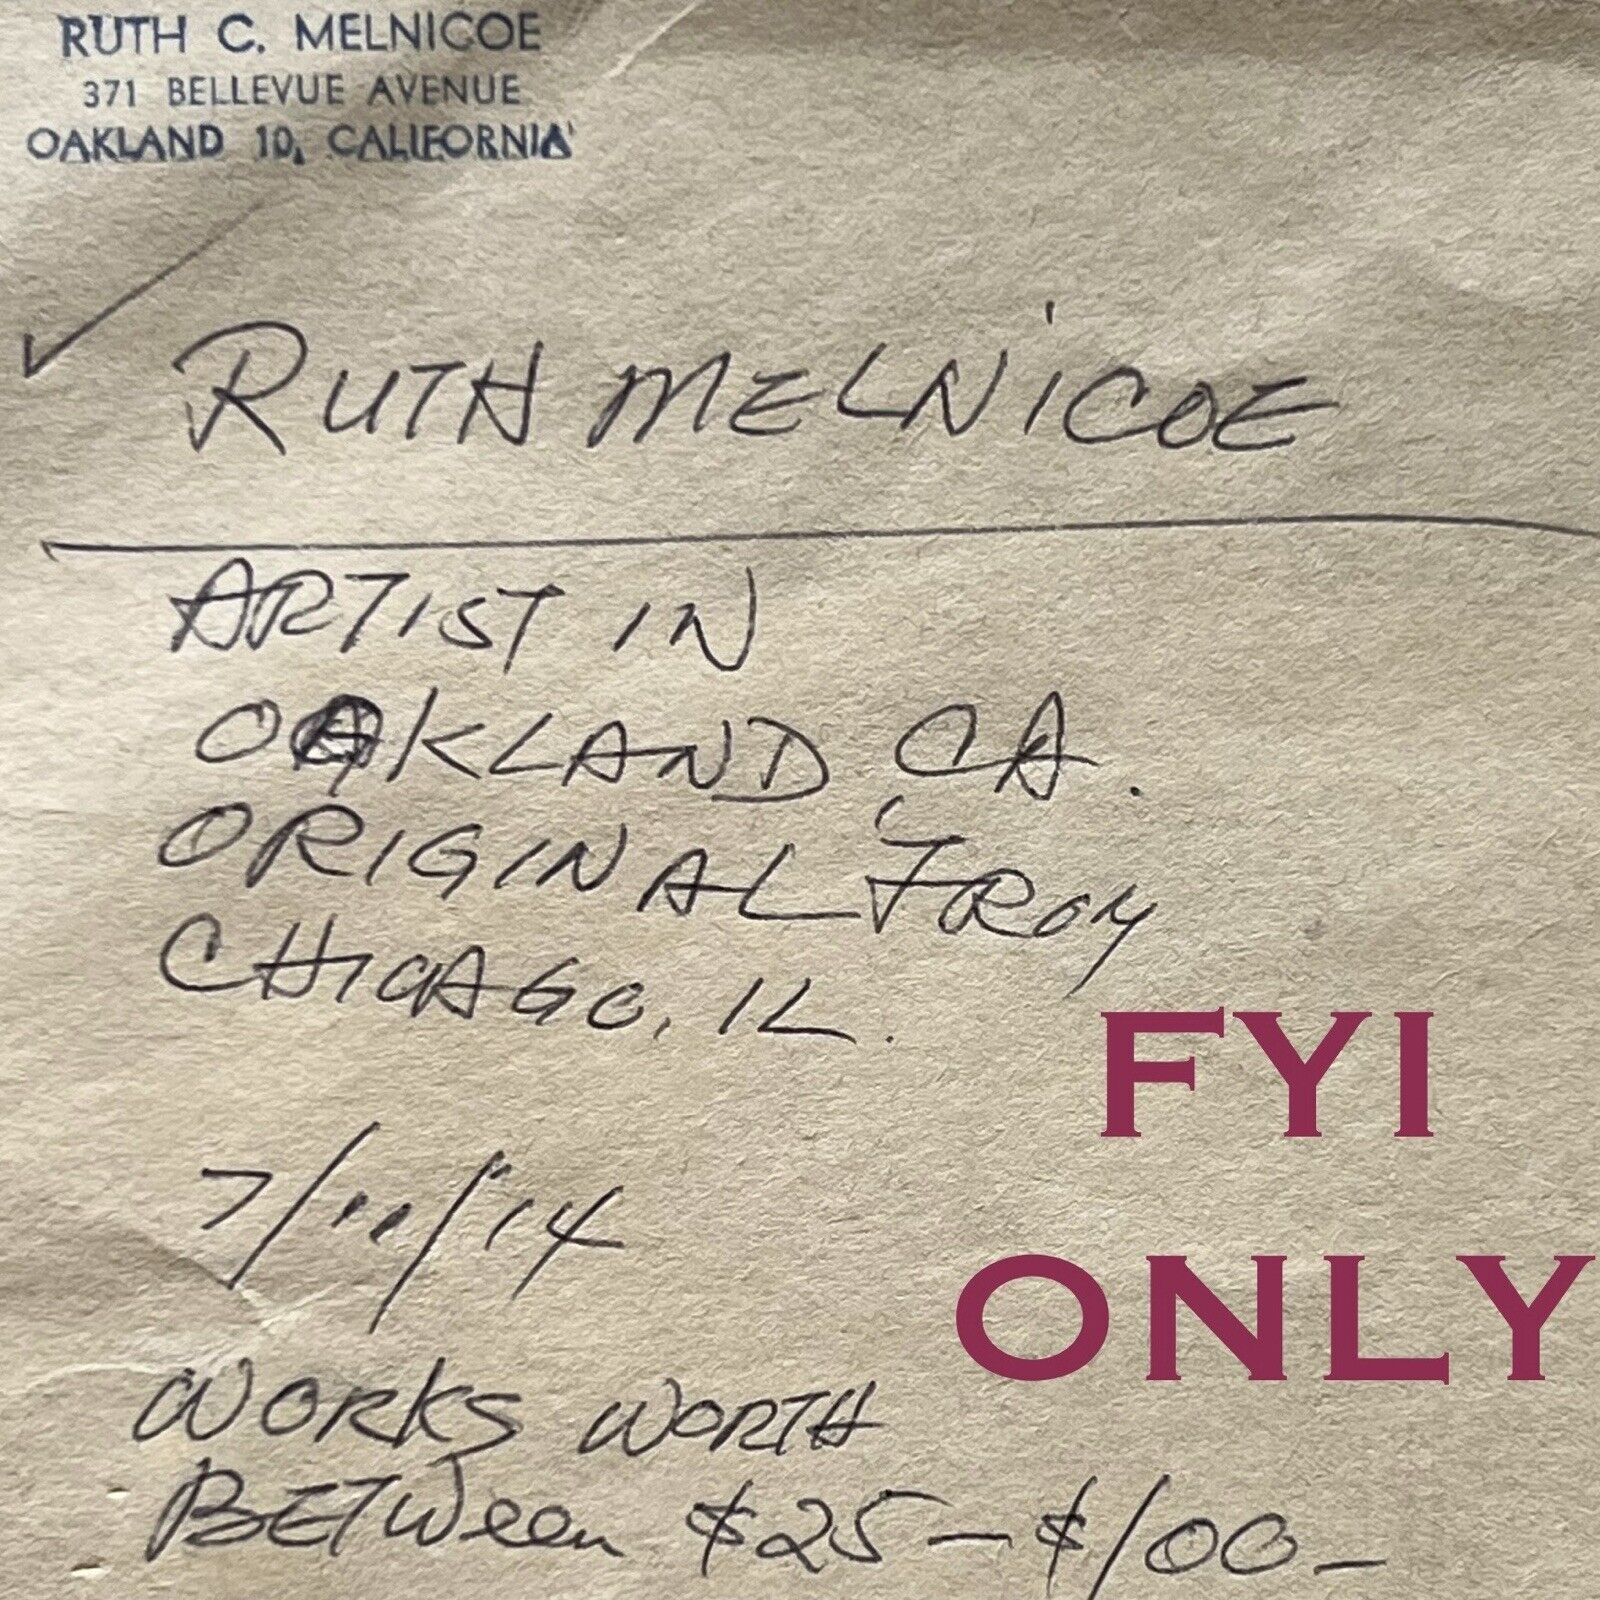 RUTH C. MELNICOE
371 BELLEVUE AVENUE
OAKLAND 10, CALIFORNIA
RUTH MELNICOE
ARTIST IN
OAKLAND CA.
ORIGINAL FROM
CHICAGO, IL.
WORKS WORTH
BETWEEN $25-$100-
FYI
ONLY